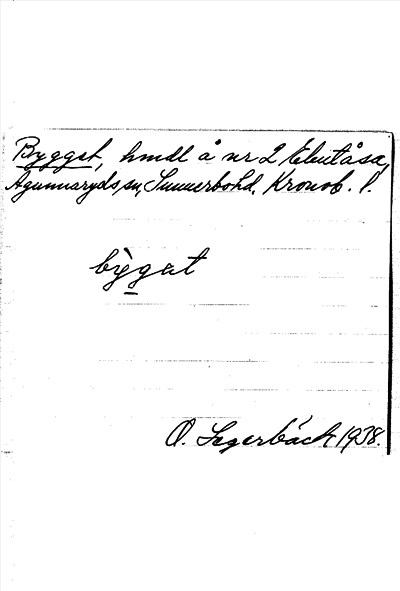 Bygget, hmdl å nr 2 Elmtåsa,
Agunnaryds sn, Sunnerbo hd. Kronob. l.
bỳgat
O. Segerbäck 1938.